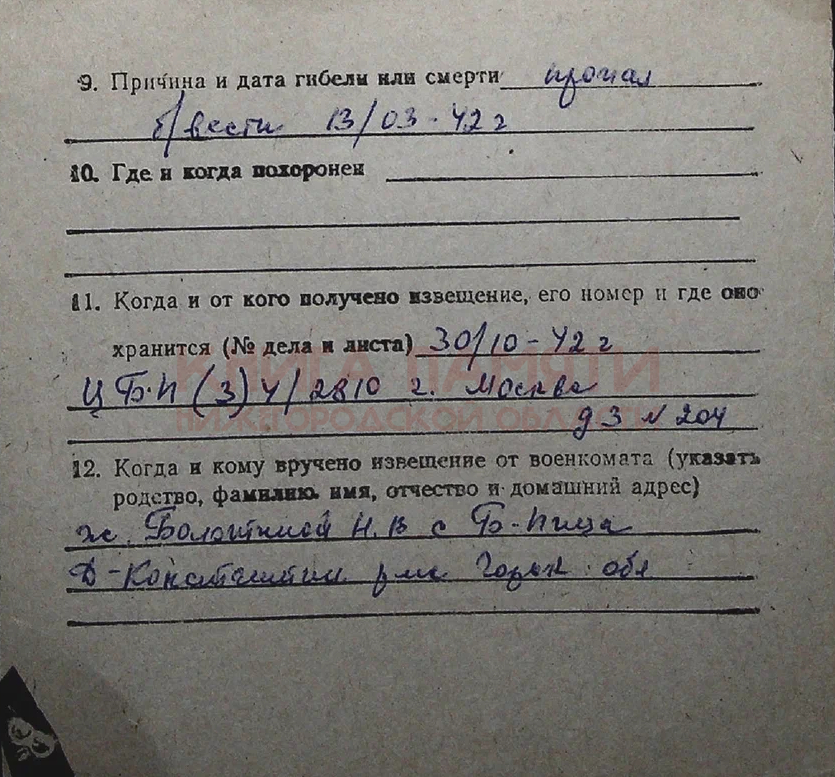 9. Причина и дата гибели или смерти пропал
б/вести 13/03-42 г
10. Где и когда похоронен
11. Когда и от кого получено извещение, его номер и где оно
хранится (№ дела и листа) 30/10-42 г
КНИГА ПАМЯТИ
ЦБ.П (3) 4/2810 г. Москва
НИЖЕГОРОДСКОЙ ОБЛАСТИ
д 3 N 204
12. Когда и кому вручено извещение от военкомата (указать
родство, фамилию, имя, отчество и домашний адрес)
ж. Болотиной Н.В с Б-Пица
Д-Константин Горьк обл